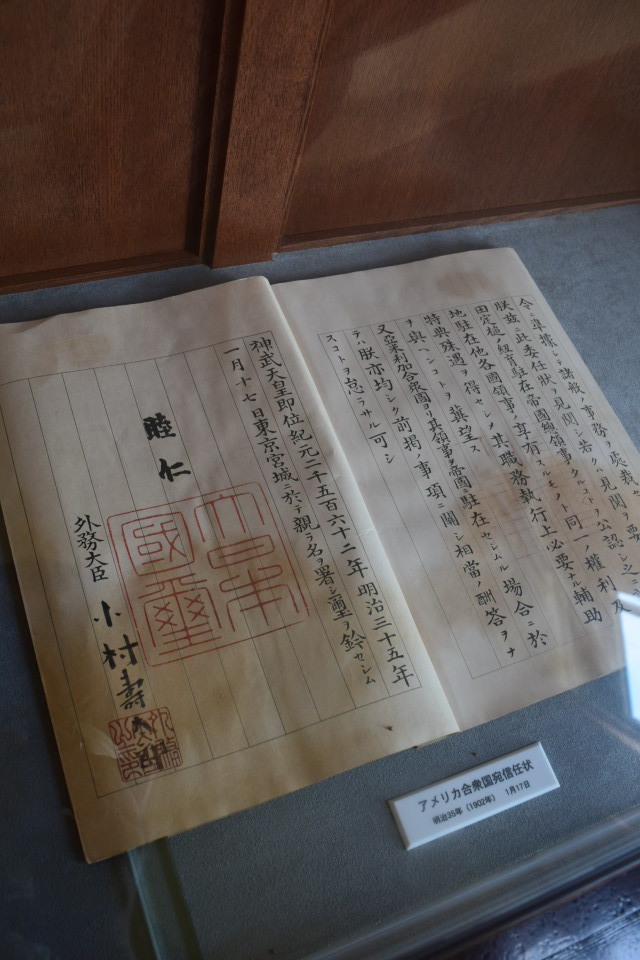 令ニ準據シテ諸般ノ事務ヲ處
朕玆ニ此委任状ヲ見聞シ若クハ見聞
田定槌ノ紐育駐在帝國總領事タルコトヲ公認シ之
地駐在他各國領事ノ享有スルモノト同一ノ權利及
特典殊遇ヲ得セシメ其職務執行上必要ナル輔助
ヲ與ヘンコトヲ冀望ス
又亞米利加合衆國ヨリ其領事ヲ帝國ニ駐在セシムル場合ニ於
テハ朕亦均シク前掲ノ事項ニ關シ相當ノ酬答ヲナ
スコトヲ怠ラサル可シ
神武天皇即位紀元二千五百六十二年明治三十五年
一月十七日東京宮城ニ於テ親ラ名ヲ署シ璽ヲ鈐セシム
睦仁
大日本
國璽
外務大臣 小村壽太郎
アメリカ合衆国宛信任状
明治35年（1902年） 1月17日